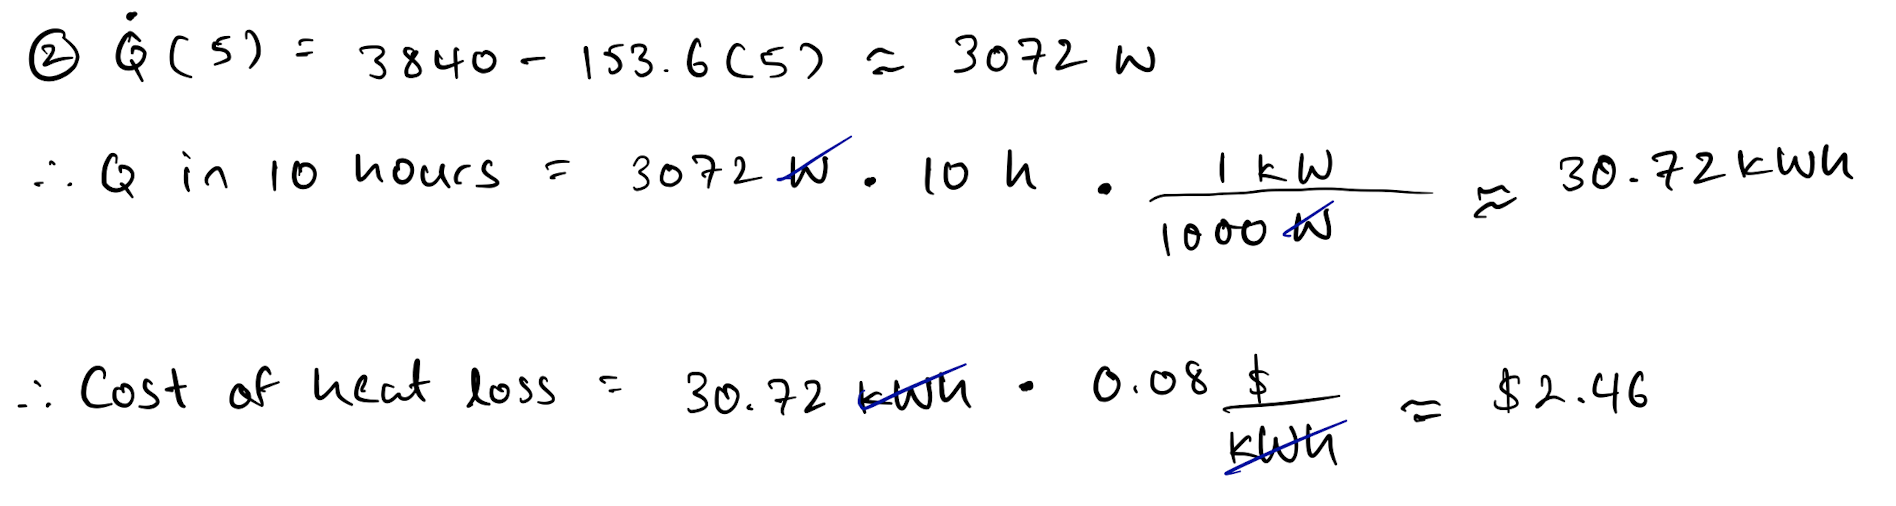 ② Q̇(5) = 3840 - 153.6(5) ≈ 3072 W
∴ Q in 10 hours = 3072 W · 10 h · 1 kW / 1000 W ≈ 30.72 kWh
∴ Cost of heat loss = 30.72 kWh · 0.08 $ / kWh ≈ $2.46